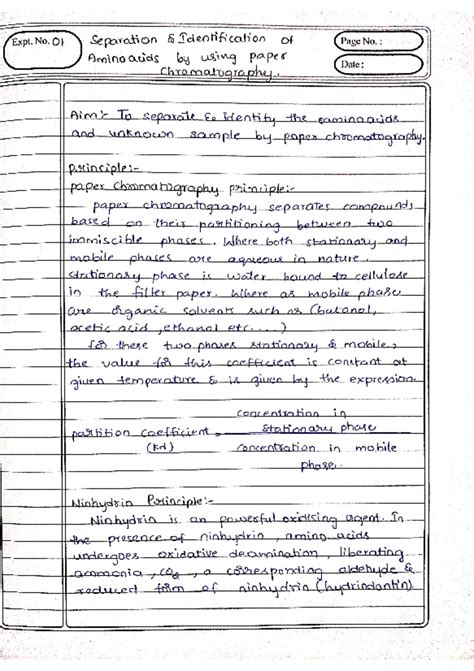 Expt. No. 01
Separation & Identification of
Aminoacids by using paper
Chromatography.
Page No. :
Date :
Aim:- To separate & Identify the aminoacids
and unknown sample by paper chromatography.
principle:-
paper Chrmmatography principle:-
paper chromatography separates compounds
based on their partitioning between two
immiscible phases. Where both stationary and
mobile phases are aqueous in nature.
stationary phase is water bound to cellulose
in the filter paper. Where as mobile phase
are organic solvents such as (butanol,
acetic acid, ethanol etc....)
for these two phases stationary & mobile,
the value for this coefficient is constant at
given temperature & is given by the expression.
partition coefficient = concentration in stationary phase
(Kd) concentration in mobile
phase.
Ninhydrin Principle:-
Ninhydrin is an powerful oxidising agent. In
the presence of ninhydrin, amino acids
undergoes oxidative deamination, liberating
ammonia, CO2, a corresponding aldehyde &
reduced form of ninhydrin (hydrindantin)